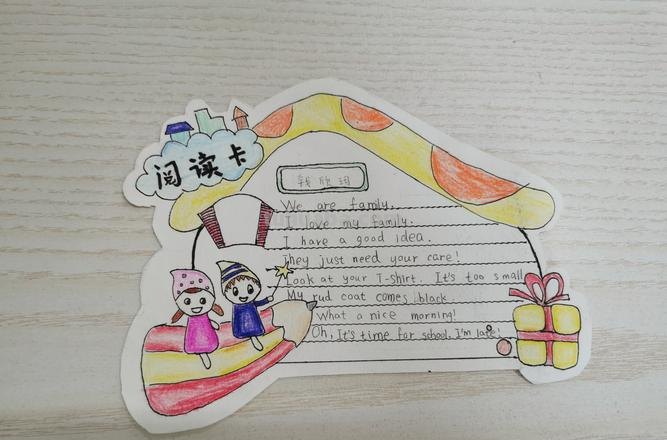 阅读卡
We are family.
I love my family.
I have a good idea.
They just need your care!
Look at your T-shirt. It's too small
My rud coat comes black
What a nice morning!
Oh, It's time for school. I'm late!